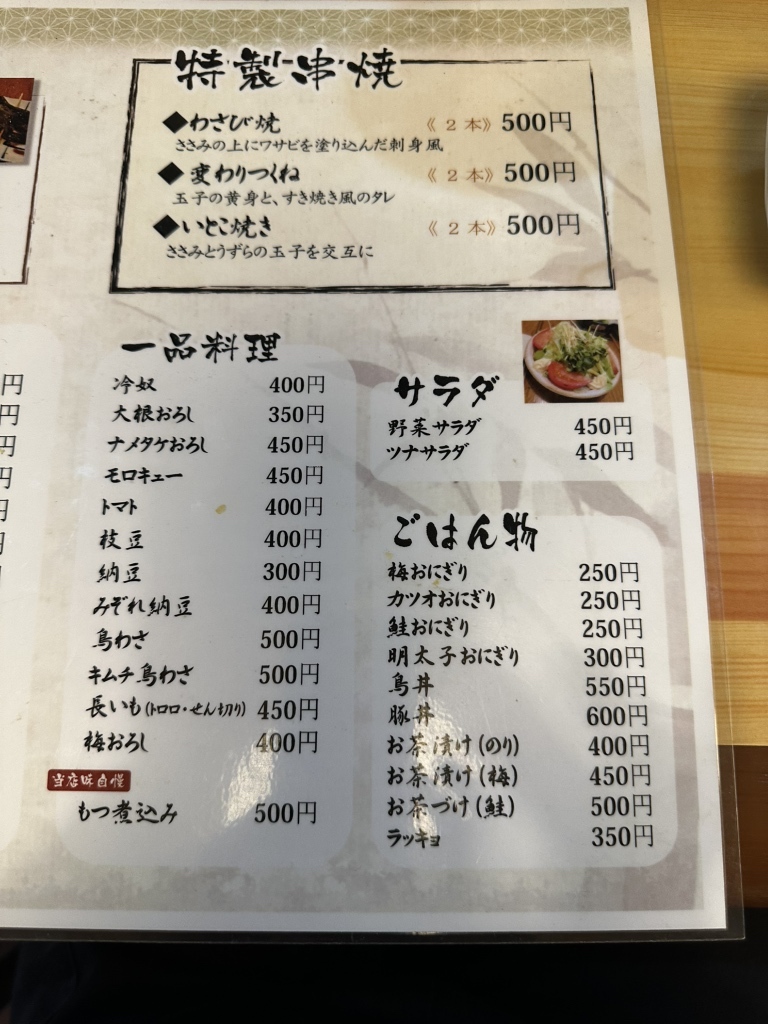 特製串焼
◆わさび焼 《２本》 500円
ささみの上にワサビを塗り込んだ刺身風
◆変わりつくね 《２本》 500円
玉子の黄身と、すき焼き風のタレ
◆いとこ焼き 《２本》 500円
ささみとうずらの玉子を交互に
一品料理
冷奴 400円
大根おろし 350円
ナメタケおろし 450円
モロキュー 450円
トマト 400円
枝豆 400円
納豆 300円
みぞれ納豆 400円
鳥わさ 500円
キムチ鳥わさ 500円
長いも(トロロ・せん切り) 450円
梅おろし 400円
当店味自慢
もつ煮込み 500円
サラダ
野菜サラダ 450円
ツナサラダ 450円
ごはん物
梅おにぎり 250円
カツオおにぎり 250円
鮭おにぎり 250円
明太子おにぎり 300円
鳥丼 550円
豚丼 600円
お茶漬け(のり) 400円
お茶漬け(梅) 450円
お茶づけ(鮭) 500円
ラッキョ 350円
円
円
円
円
円
円
円